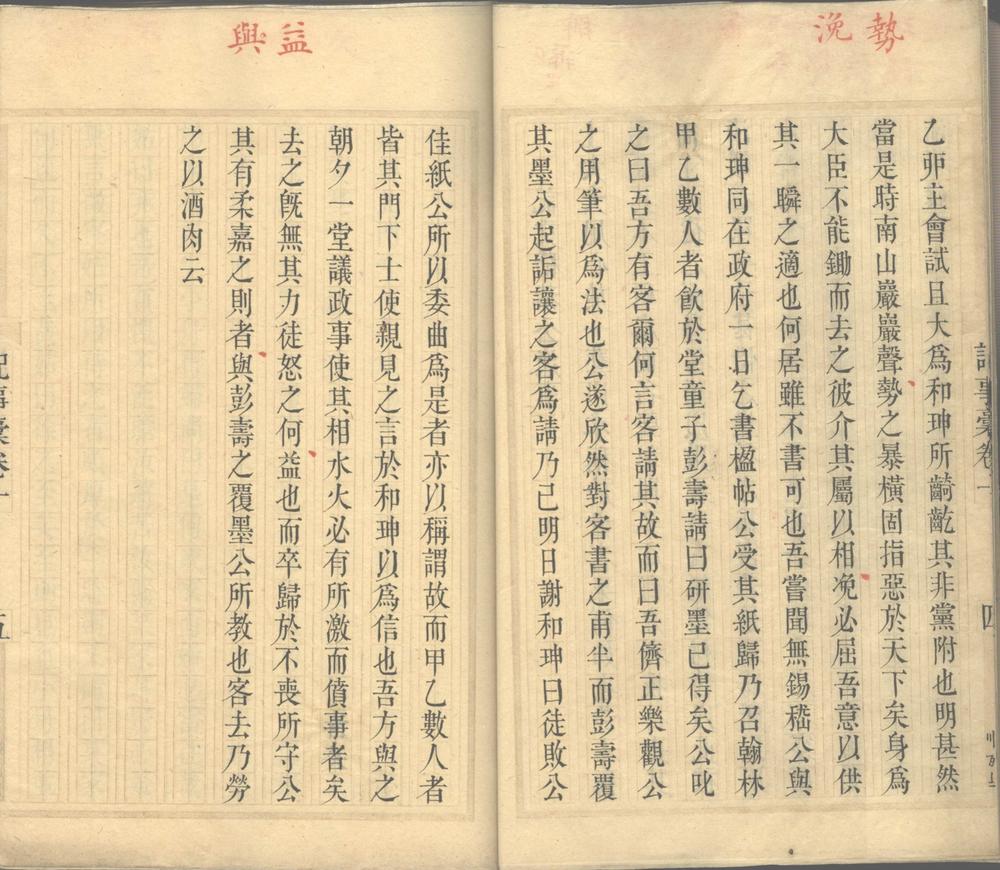 勢 浼
乙卯主會試且大爲和珅所齮齕其非黨附也明甚然
當是時南山巖巖聲勢之暴橫固指惡於天下矣身爲
大臣不能鋤而去之彼介其屬以相浼必屈吾意以供
其一瞬之適也何居雖不書可也吾嘗聞無錫嵇公與
和珅同在政府一日乞書楹帖公受其紙歸乃召翰林
甲乙數人者飮於堂童子彭壽請曰硏墨已得矣公叱
之曰吾方有客爾何言客請其故而曰吾儕正樂觀公
之用筆以爲法也公遂欣然對客書之甫半而彭壽覆
其墨公起詬讓之客爲請乃已明日謝和珅曰徒敗公
記事稾卷一
四
益 與
佳紙公所以委曲爲是者亦以稱謂故而甲乙數人者
皆其門下士使親見之言於和珅以爲信也吾方與之
朝夕一堂議政事使其相水火必有所激而僨事者矣
去之旣無其力徒怒之何益也而卒歸於不喪所守公
其有柔嘉之則者與彭壽之覆墨公所教也客去乃勞
之以酒肉云
記事稾卷一
五